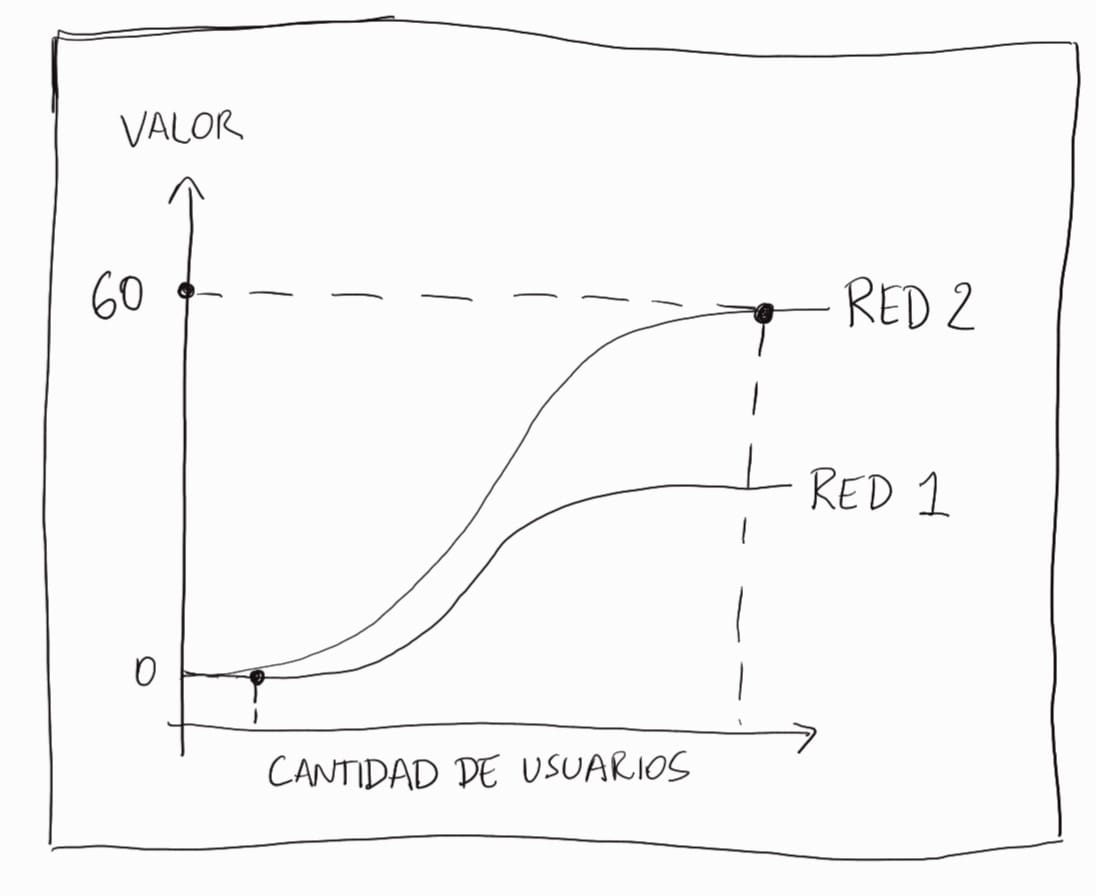 VALOR
60
RED 2
RED 1
0
CANTIDAD DE USUARIOS